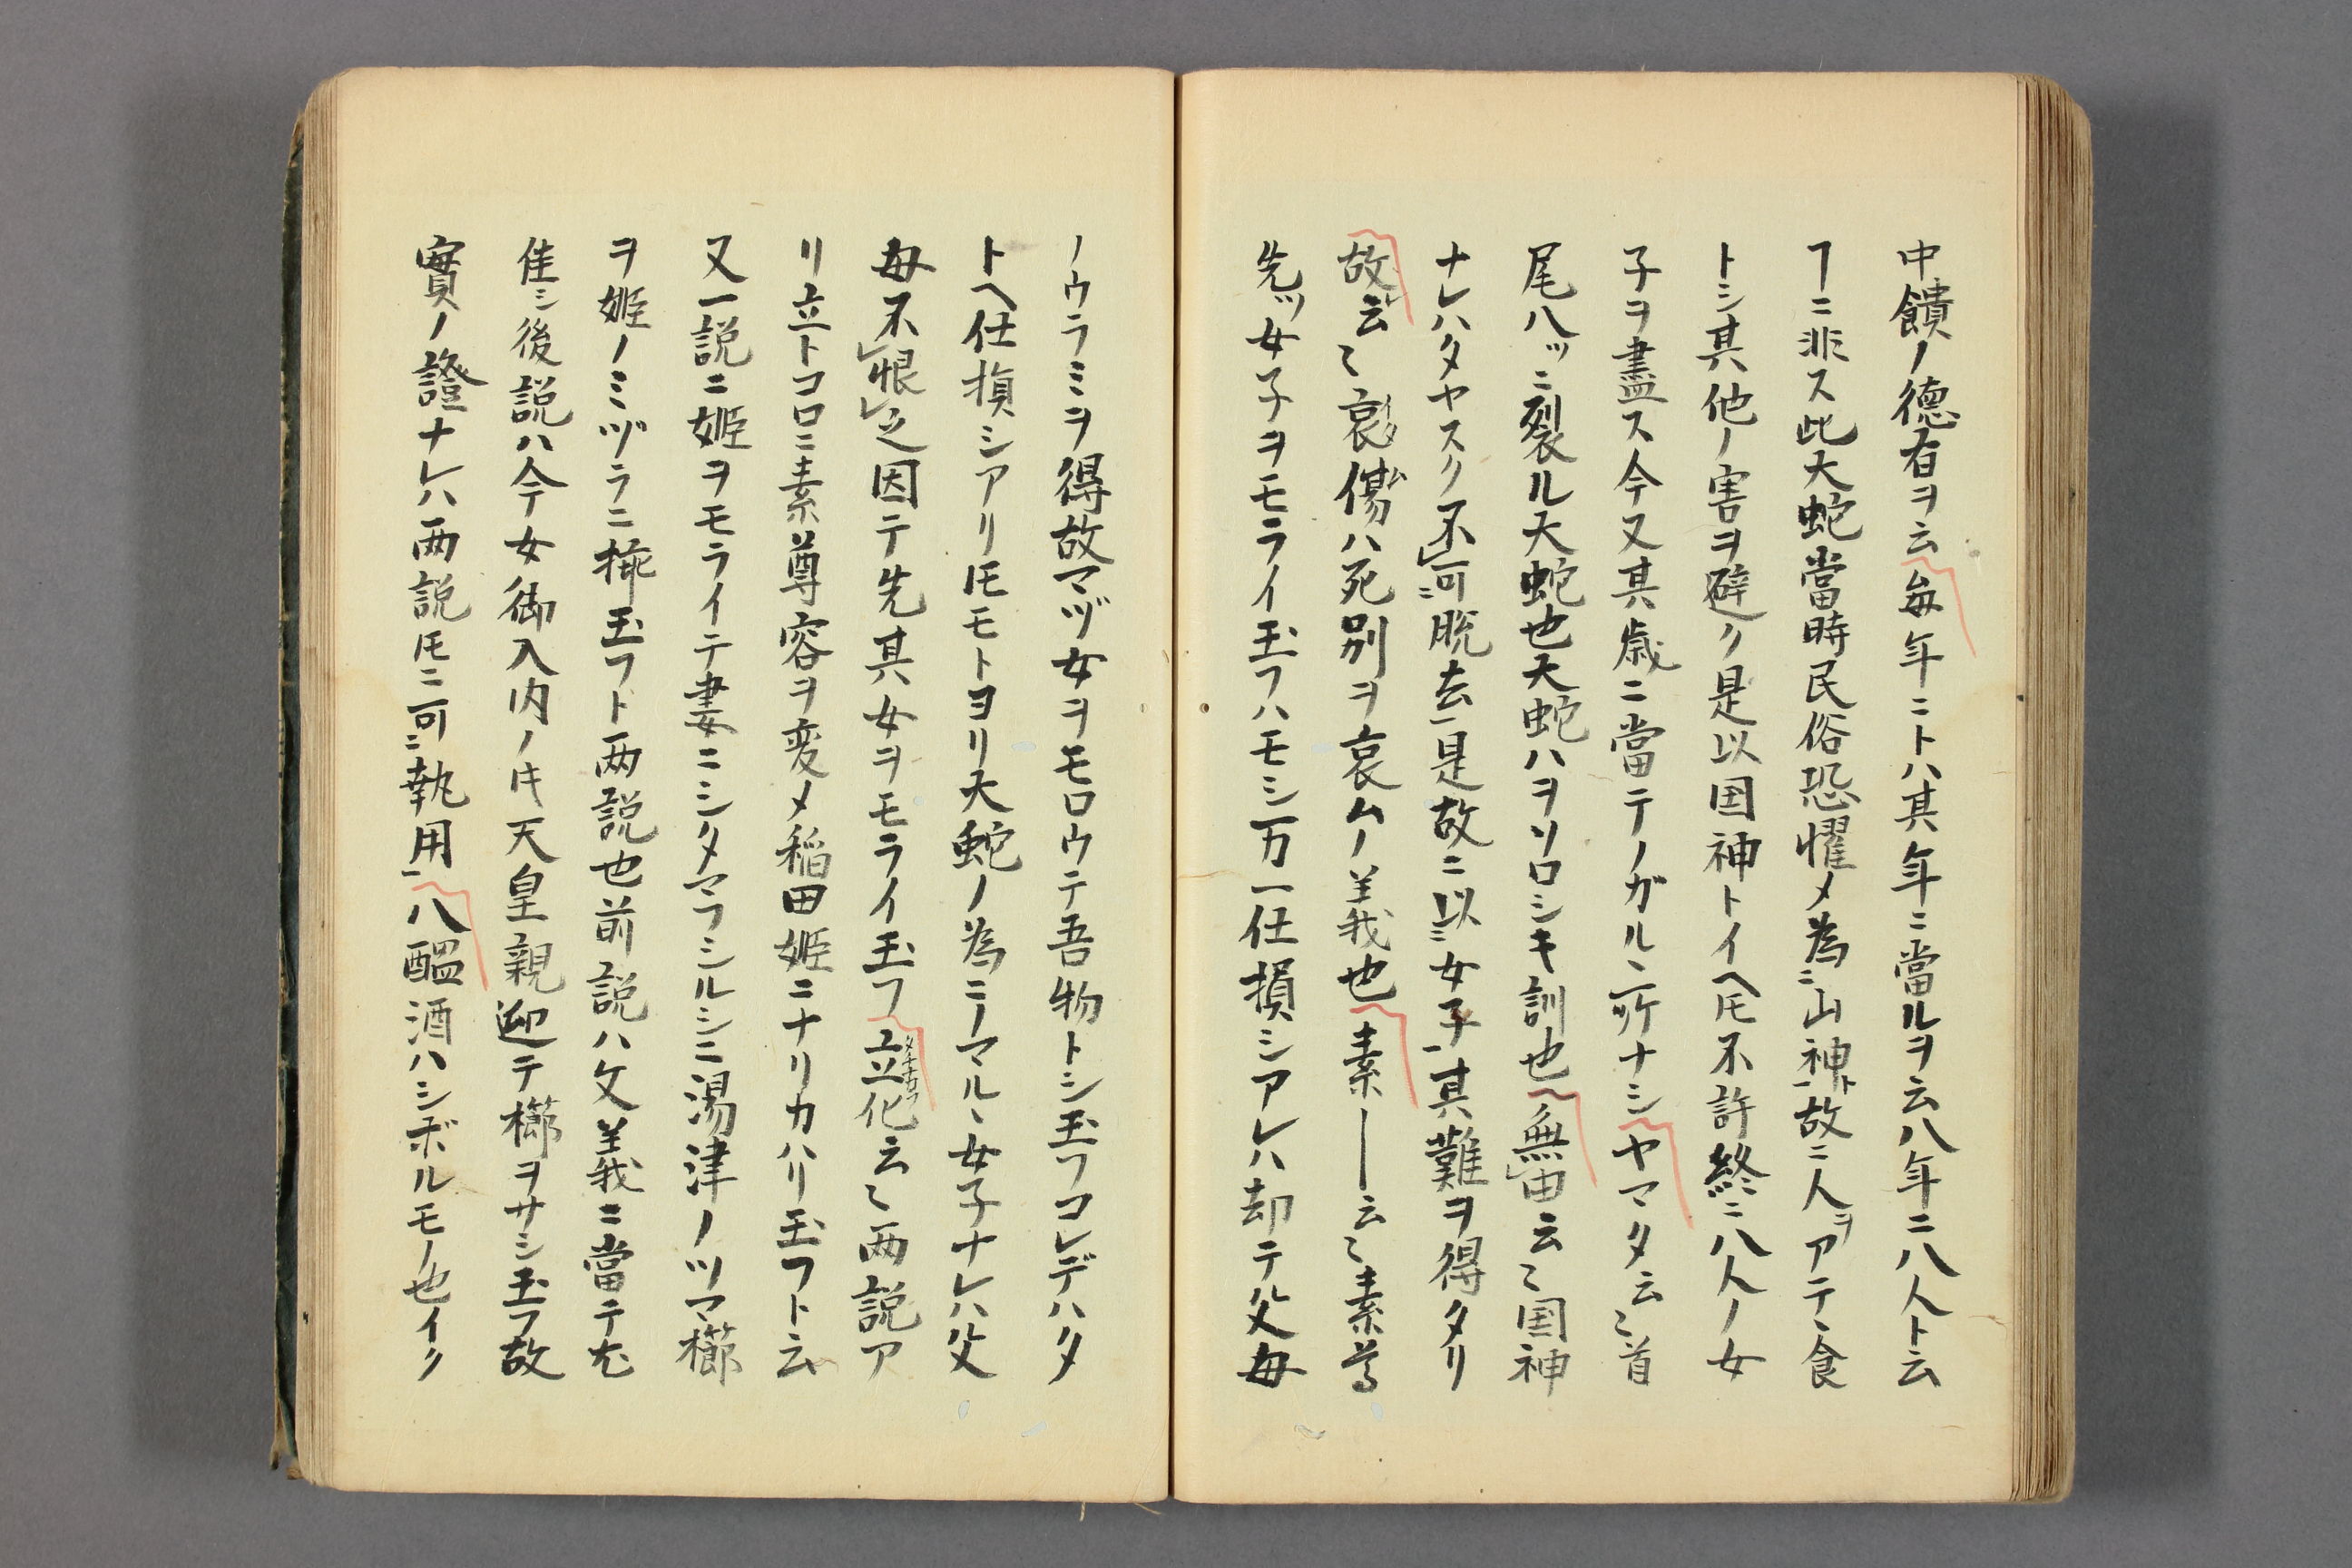 中饋ノ徳有ヲ云毎年ニトハ其年ニ當ルヲ云八年ニ八人ト云
ヿニ非ス此大蛇當時民俗恐懼メ為ニ山神ト故ニ人ヲアテヽ食
トシ其他ノ害ヲ避ク是以国神トイヘ𪜈不許終ニ八人ノ女
子ヲ盡ス今又其歳ニ當テノガルヽ所ナシヤマタ云〻首
尾八ッニ裂ル大蛇也大蛇ハヲソロシキ訓也無由云〻国神
ナレハタヤスク不可脱去是故ニ以女子其難ヲ得タリ
故云〻哀傷ハ死別ヲ哀ムノ義也素──云〻素尊
先ッ女子ヲモライ玉フハモシ万一仕損シアレハ却テ父母
ノウラミヲ得故マヅ女ヲモロウテ吾物トシ玉フコレデハタ
トヘ仕損シアリ𪜈モトヨリ大蛇ノ為ニノマルヽ女子ナレハ父
母不恨之因テ先其女ヲモライ玉フ立化云〻両説ア
リ立トコロニ素尊容ヲ変メ稲田姫ニナリカハリ玉フト云
又一説ニ姫ヲモライテ妻ニシタマフシルシニ湯津ノツマ櫛
ヲ姫ノミヅラニ挿玉フト両説也前説ハ文義ニ當テ尤
佳シ後説ハ今女御入内ノ𪜀天皇親迎テ櫛ヲサシ玉フ故
實ノ證ナレハ両説𪜈ニ可執用八醞酒ハシボルモノ也イク